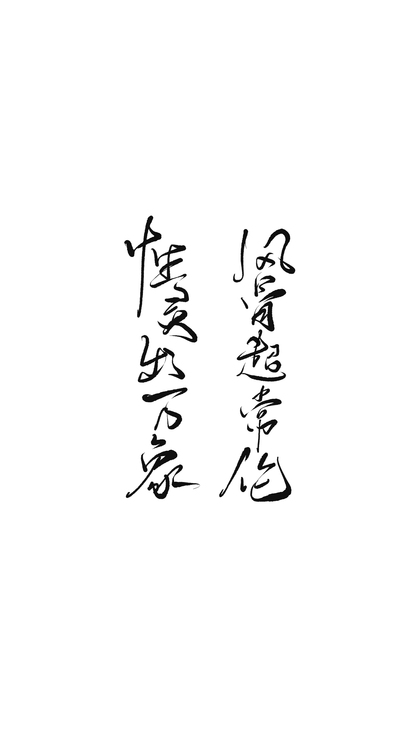 风骨超常伦
性灵出万象